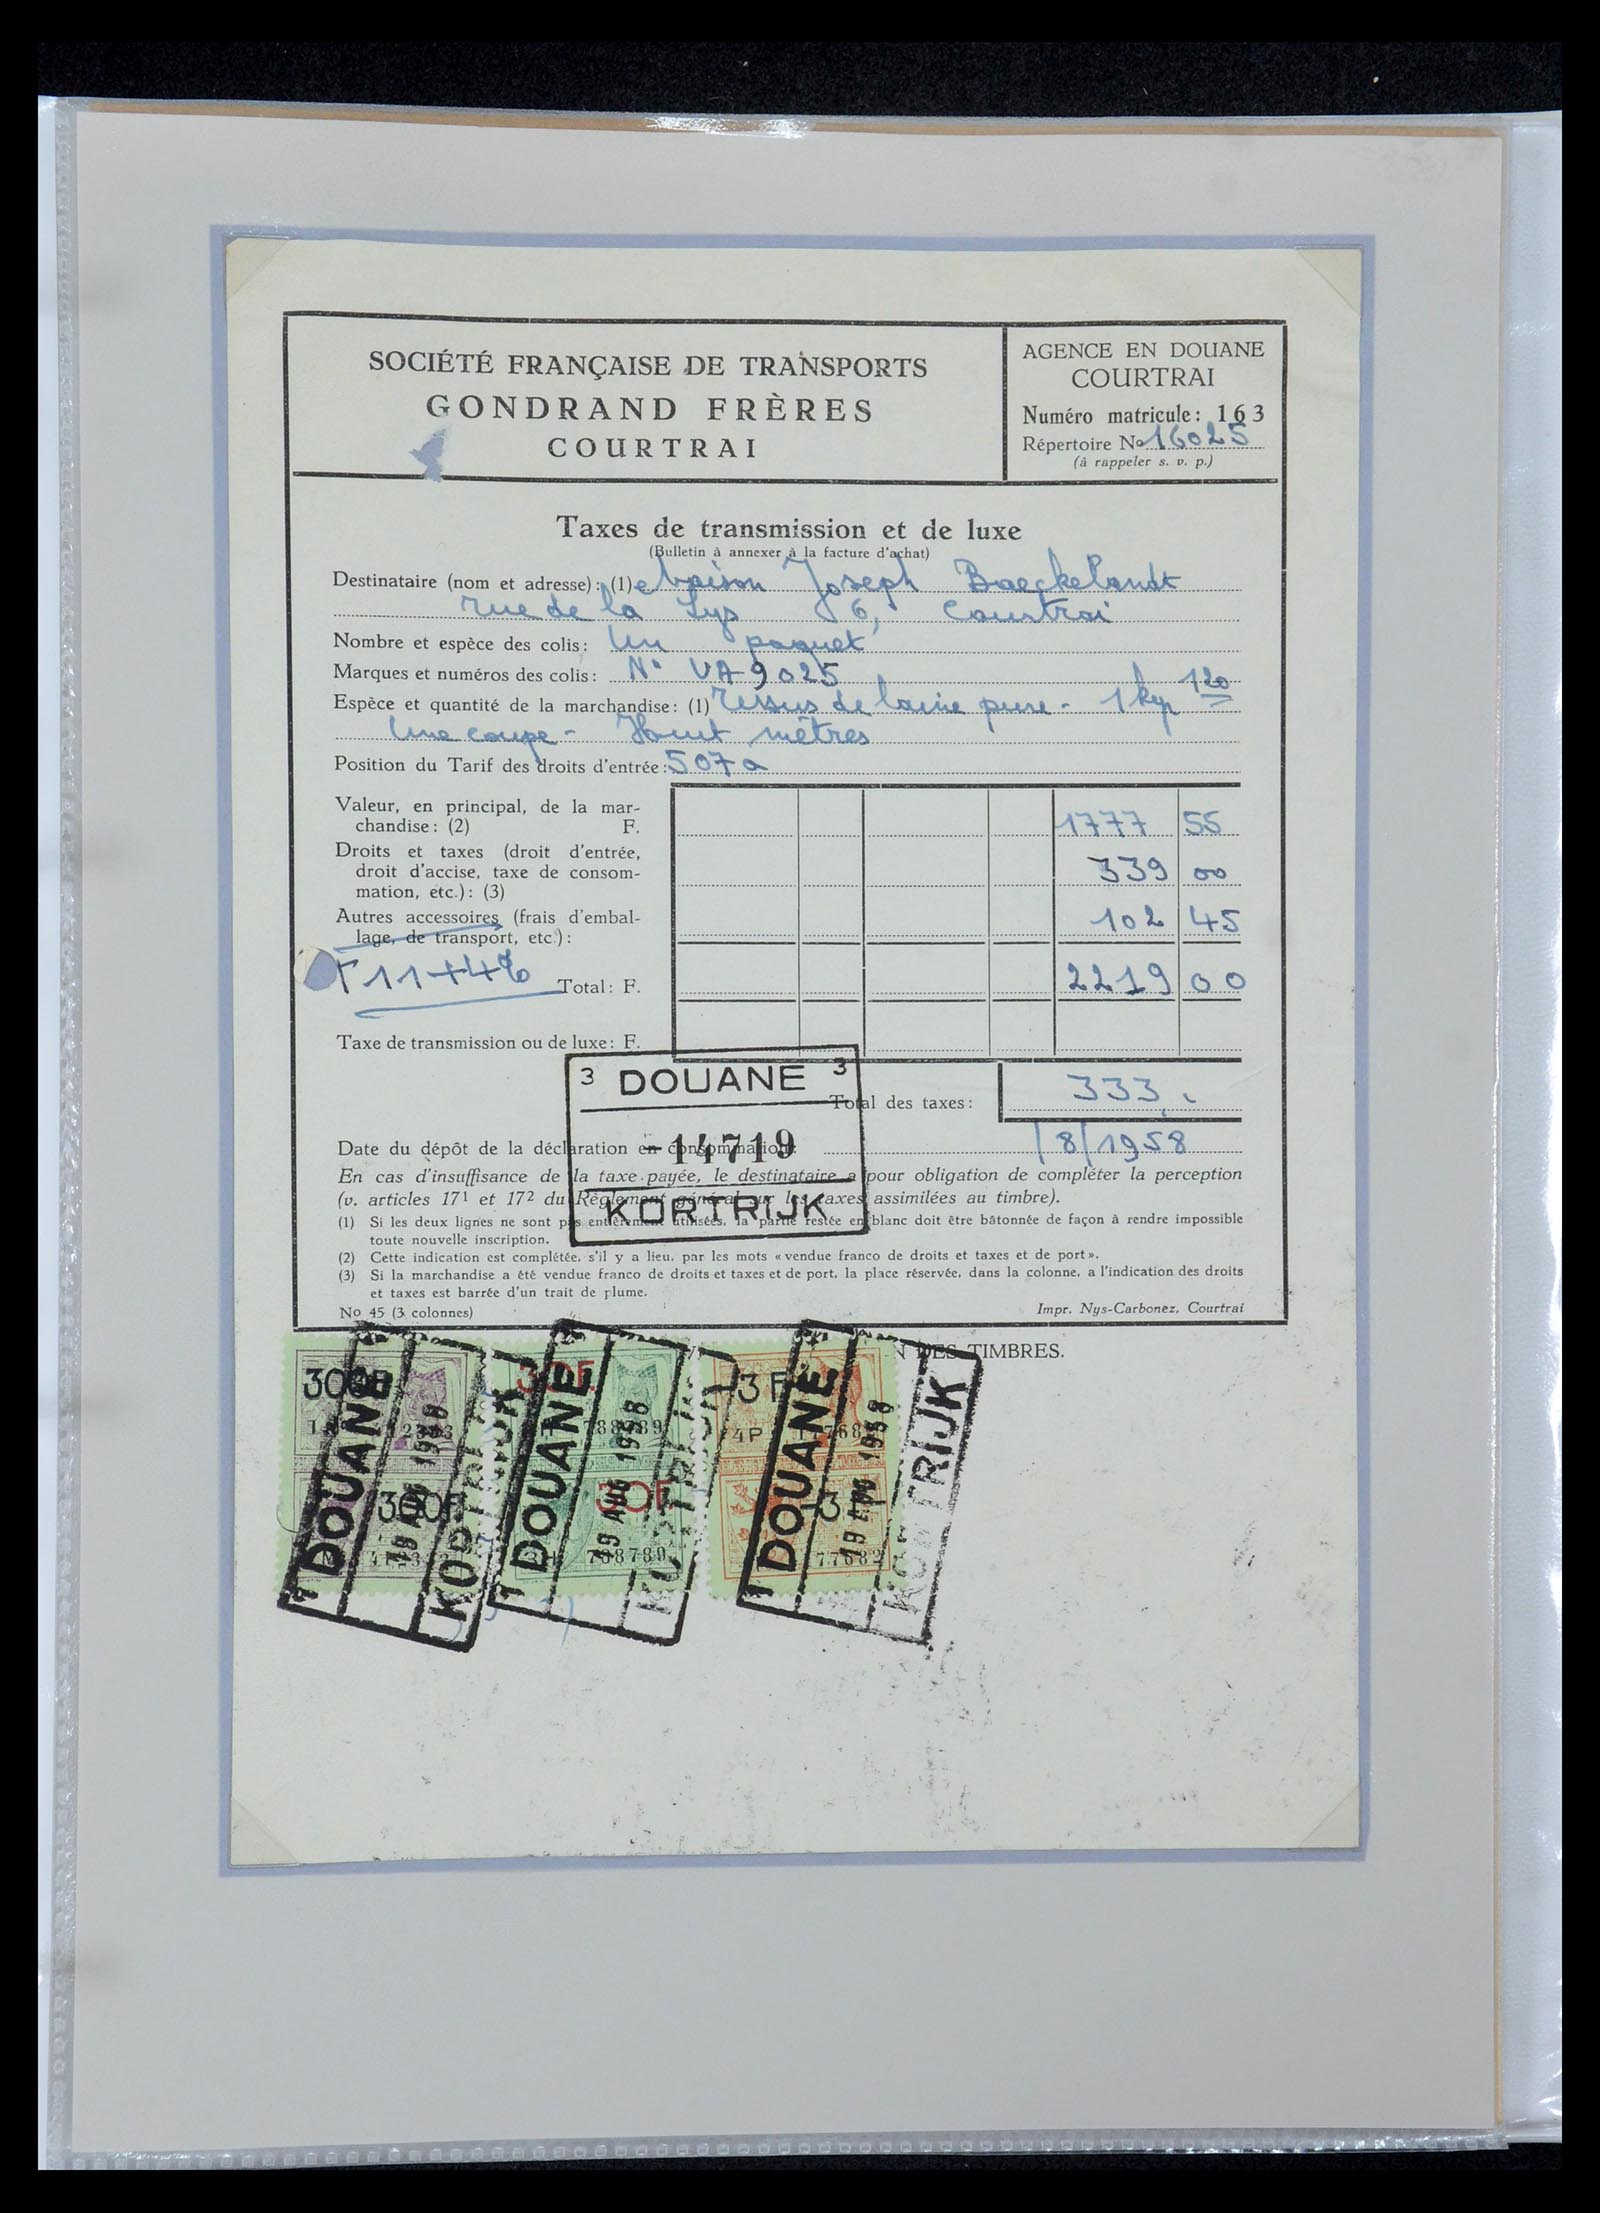 SOCIÉTÉ FRANÇAISE DE TRANSPORTS
GONDRAND FRÈRES
COURTRAI
AGENCE EN DOUANE
COURTRAI
Numéro matricule: 163
Répertoire No 16025
(à rappeler s. v. p.)
Taxes de transmission et de luxe
(Bulletin à annexer à la facture d'achat)
Destinataire (nom et adresse): (1) Joseph Baeckelandt
rue de la Lys 6, Courtrai
Nombre et espèce des colis: Un paquet
Marques et numéros des colis: N° VA 9025
Espèce et quantité de la marchandise: (1) Tissus de laine pure - 1 kgr 120
Une coupe - Huit mètres
Position du Tarif des droits d'entrée: 507a
Valeur, en principal, de la mar-
chandise: (2) F. 1777 55
Droits et taxes (droit d'entrée,
droit d'accise, taxe de consom-
mation, etc.): (3) 339 00
Autres accessoires (frais d'embal-
lage, de transport, etc.): 102 45
11+4%
Total: F. 2219 00
Taxe de transmission ou de luxe: F.
3 DOUANE 3
Total des taxes: 333,-
14719
Date du dépôt de la déclaration en consommation: /8/1958
En cas d'insuffisance de la taxe payée, le destinataire a pour obligation de compléter la perception
(v. articles 17¹ et 17² du Règlement général sur les taxes assimilées au timbre).
KORTRIJK
(1) Si les deux lignes ne sont pas entièrement utilisées, la partie restée en blanc doit être bâtonnée de façon à rendre impossible
toute nouvelle inscription.
(2) Cette indication est complétée, s'il y a lieu, par les mots « vendue franco de droits et taxes et de port ».
(3) Si la marchandise a été vendue franco de droits et taxes et de port, la place réservée, dans la colonne, a l'indication des droits
et taxes est barrée d'un trait de plume.
No 45 (3 colonnes)
Impr. Nys-Carbonez, Courtrai
DES TIMBRES.
300F
30F.
3F
4P
300F
30F
3F
788789
77682
1 DOUANE
19 AUG 1958
KORTRIJK
1 DOUANE
19 AUG 1958
KORTRIJK
1 DOUANE
19 AUG 1958
KORTRIJK